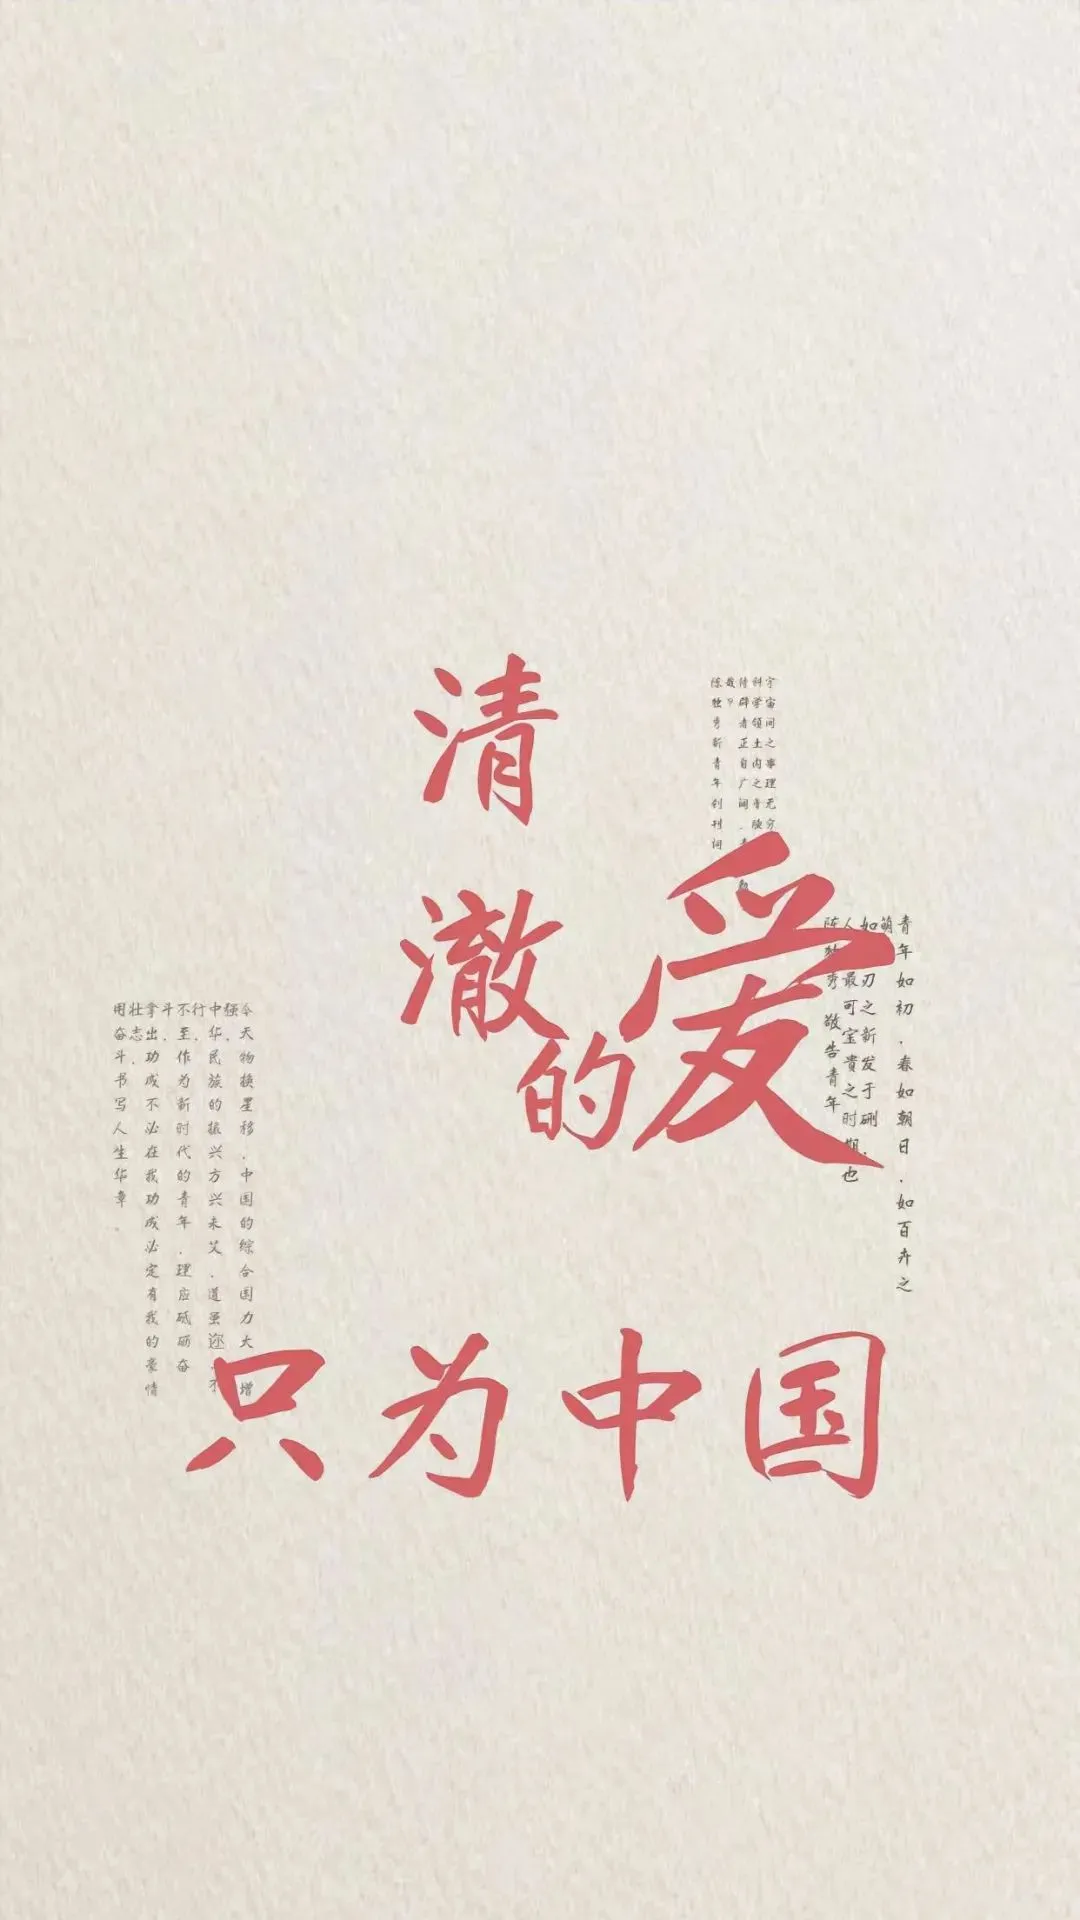 清澈的爱
只为中国
宇宙间之事理无穷
科学领土内之膏腴
待辟者正自广阔、青
哉？
陈独秀新青年创刊词
青年如初、春如朝日、如百卉之
萌
如 刃之新发于硎、
人 最可宝贵之时期也
陈独秀 敬告青年
今天物换星移、中国的综合国力大 增
强、
中华民族的振兴方兴未艾、道虽迩、不
行、
不至、作为新时代的青年、理应砥砺奋
斗、
拿出、功成不必在我功成必定有我的豪情
壮志、
用奋斗书写人生华章。